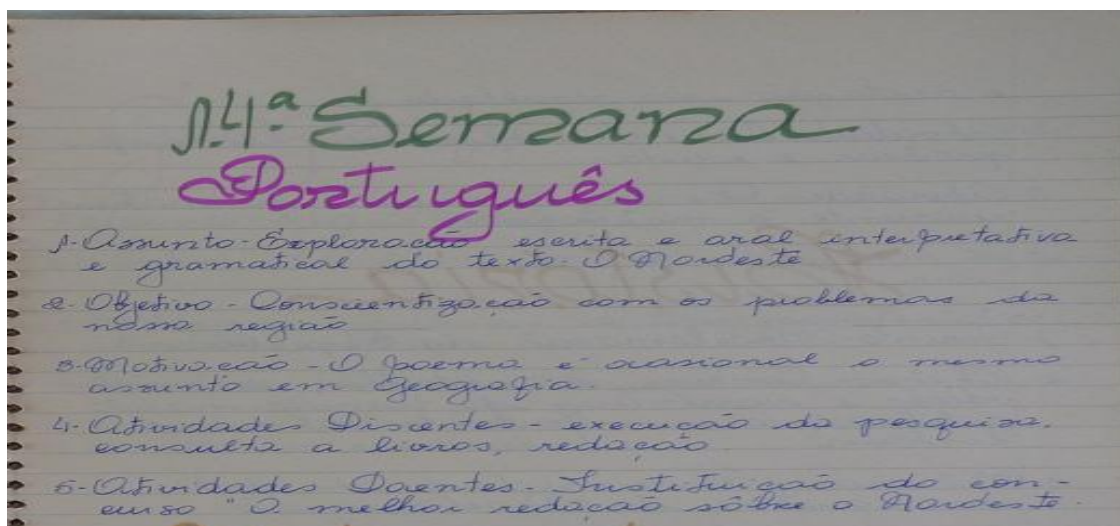 14ª Semana
Português
1-Assunto-Exploração escrita e oral interpretativa
e gramatical do texto-O Nordeste
2-Objetivo-Conscientização com os problemas da
nossa região
3-Motivação-O poema é ocasional o mesmo
assunto em Geografia.
4-Atividades Discentes-execução da pesquisa,
consulta a livros, redação
5-Atividades Docentes-Instituição do con-
curso "A melhor redação sôbre o Nordeste.